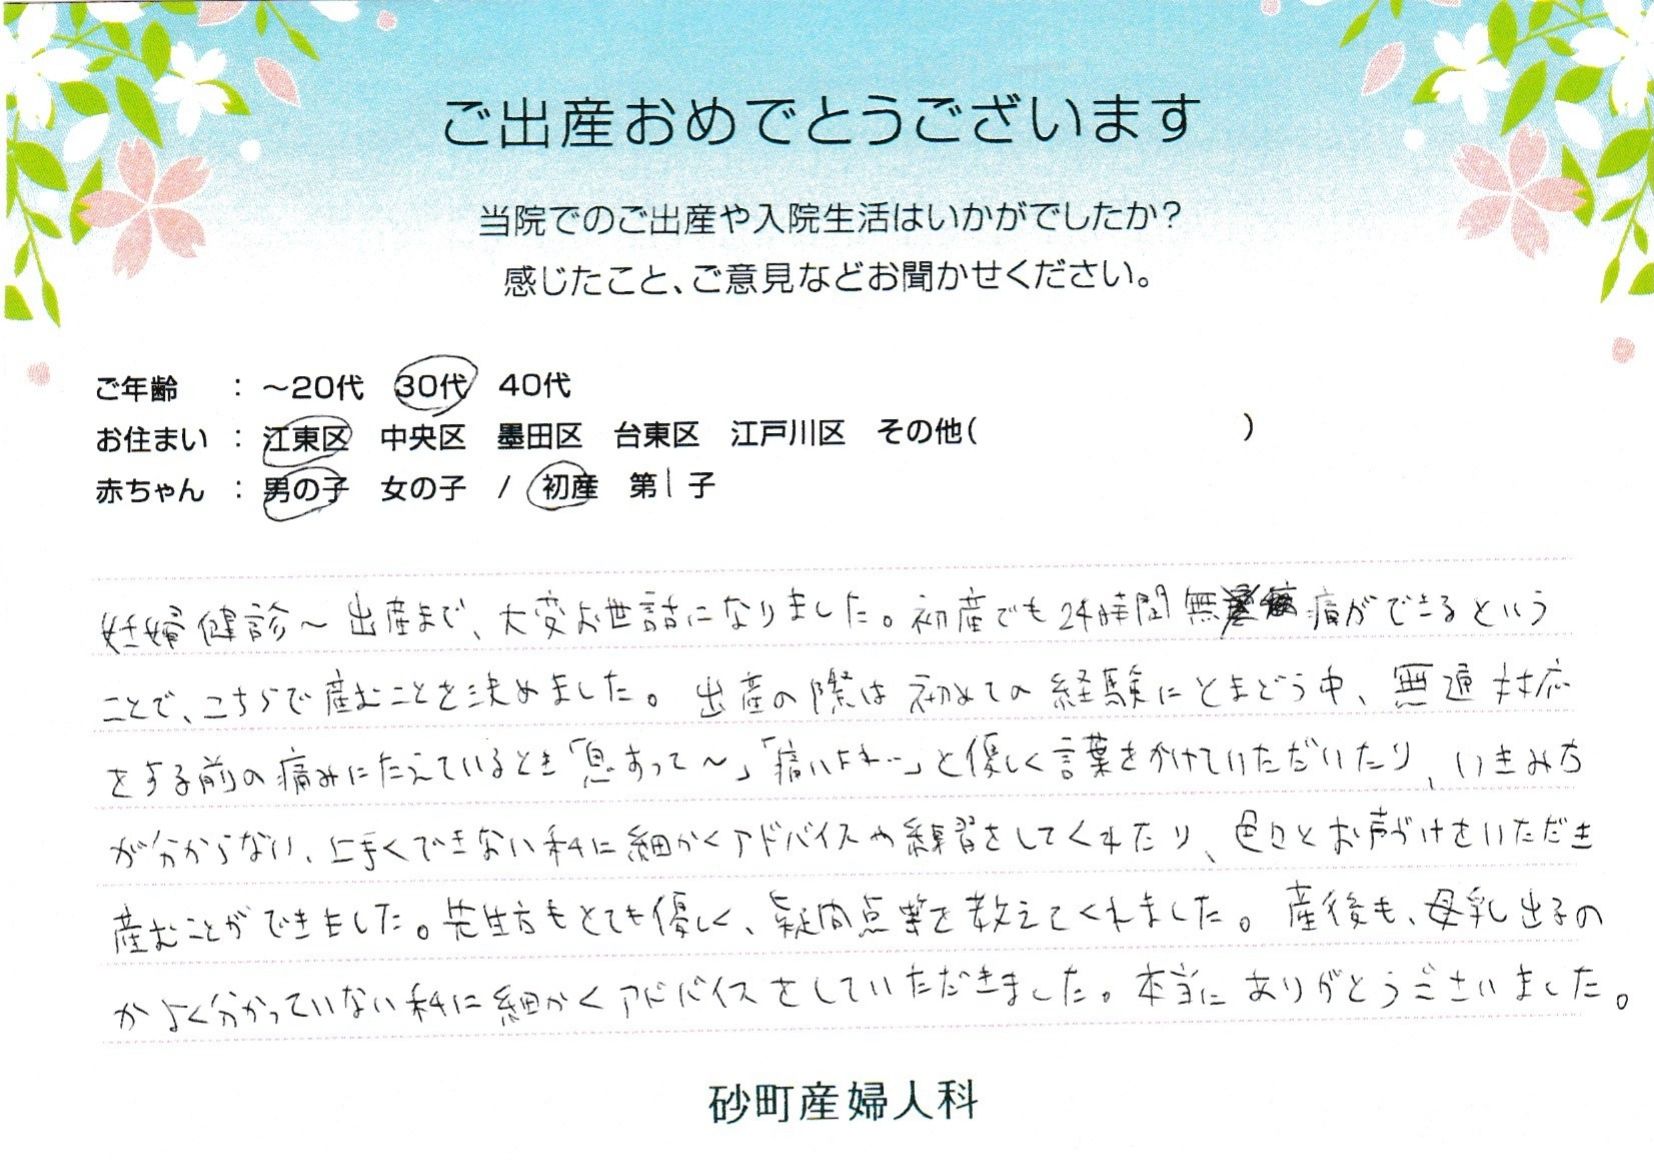 ご出産おめでとうございます
当院でのご出産や入院生活はいかがでしたか?
感じたこと、ご意見などお聞かせください。
ご年齢 : ～20代 30代 40代
お住まい : 江東区 中央区 墨田区 台東区 江戸川区 その他( )
赤ちゃん : 男の子 女の子 / 初産 第1子
妊婦健診～出産まで、大変お世話になりました。初産でも24時間無痛ができるという
ことで、こちらで産むことを決めました。出産の際は初めての経験にとまどう中、無通対応
をする前の痛みにたえているとき「息すって～」「痛いよね…」と優しく言葉をかけていただいたり、いきみ方
が分からない、上手くできない私に細かくアドバイスや練習をしてくれたり、色々とお声がけをいただき
産むことができました。先生方もとても優しく、疑問点等を教えてくれました。産後も、母乳出るの
かよく分かっていない私に細かくアドバイスをしていただきました。本当にありがとうございました。
砂町産婦人科